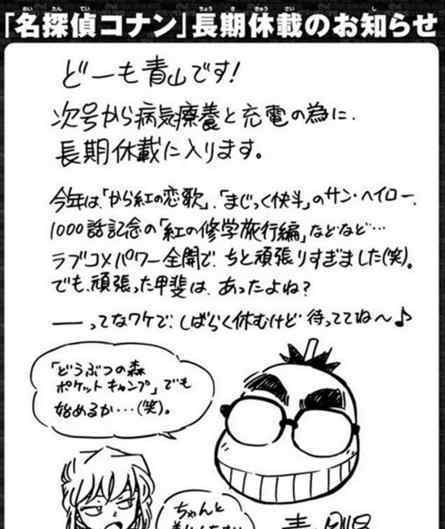 「名探偵コナン」長期休載のお知らせ
どーも青山です!
次号から病気療養と充電の為に、
長期休載に入ります。
今年は、「から紅の恋歌」、「まじっく快斗」のサン・ヘイロー、
1000話記念の「紅の修学旅行編」などなど…
ラブコメパワー全開で、ちと頑張りすぎました(笑)。
でも、頑張った甲斐は、あったよね?
――ってなワケで、しばらく休むけど待っててね〜♪
「どうぶつの森
ポケットキャンプ」でも
始めるか…(笑)。
ちゃんと